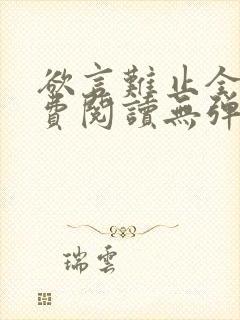 欲言難止全
費閱讀無彈
瑞雲